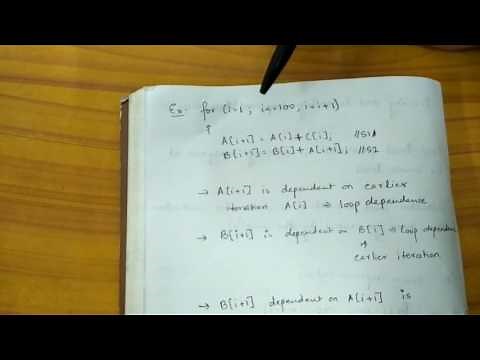 Ex:- for (i=1; i<=100, i=i+1)
↑
A[i+1] = A[i] + C[i]; //S1
B[i+1] = B[i] + A[i+1]; //S2
→ A[i+1] is dependent on earlier
iteration A[i] ⇒ loop dependence
→ B[i+1] is dependent on B[i] ⇒ loop dependen
earlier iteration
→ B[i+1] dependent on A[i+1] is